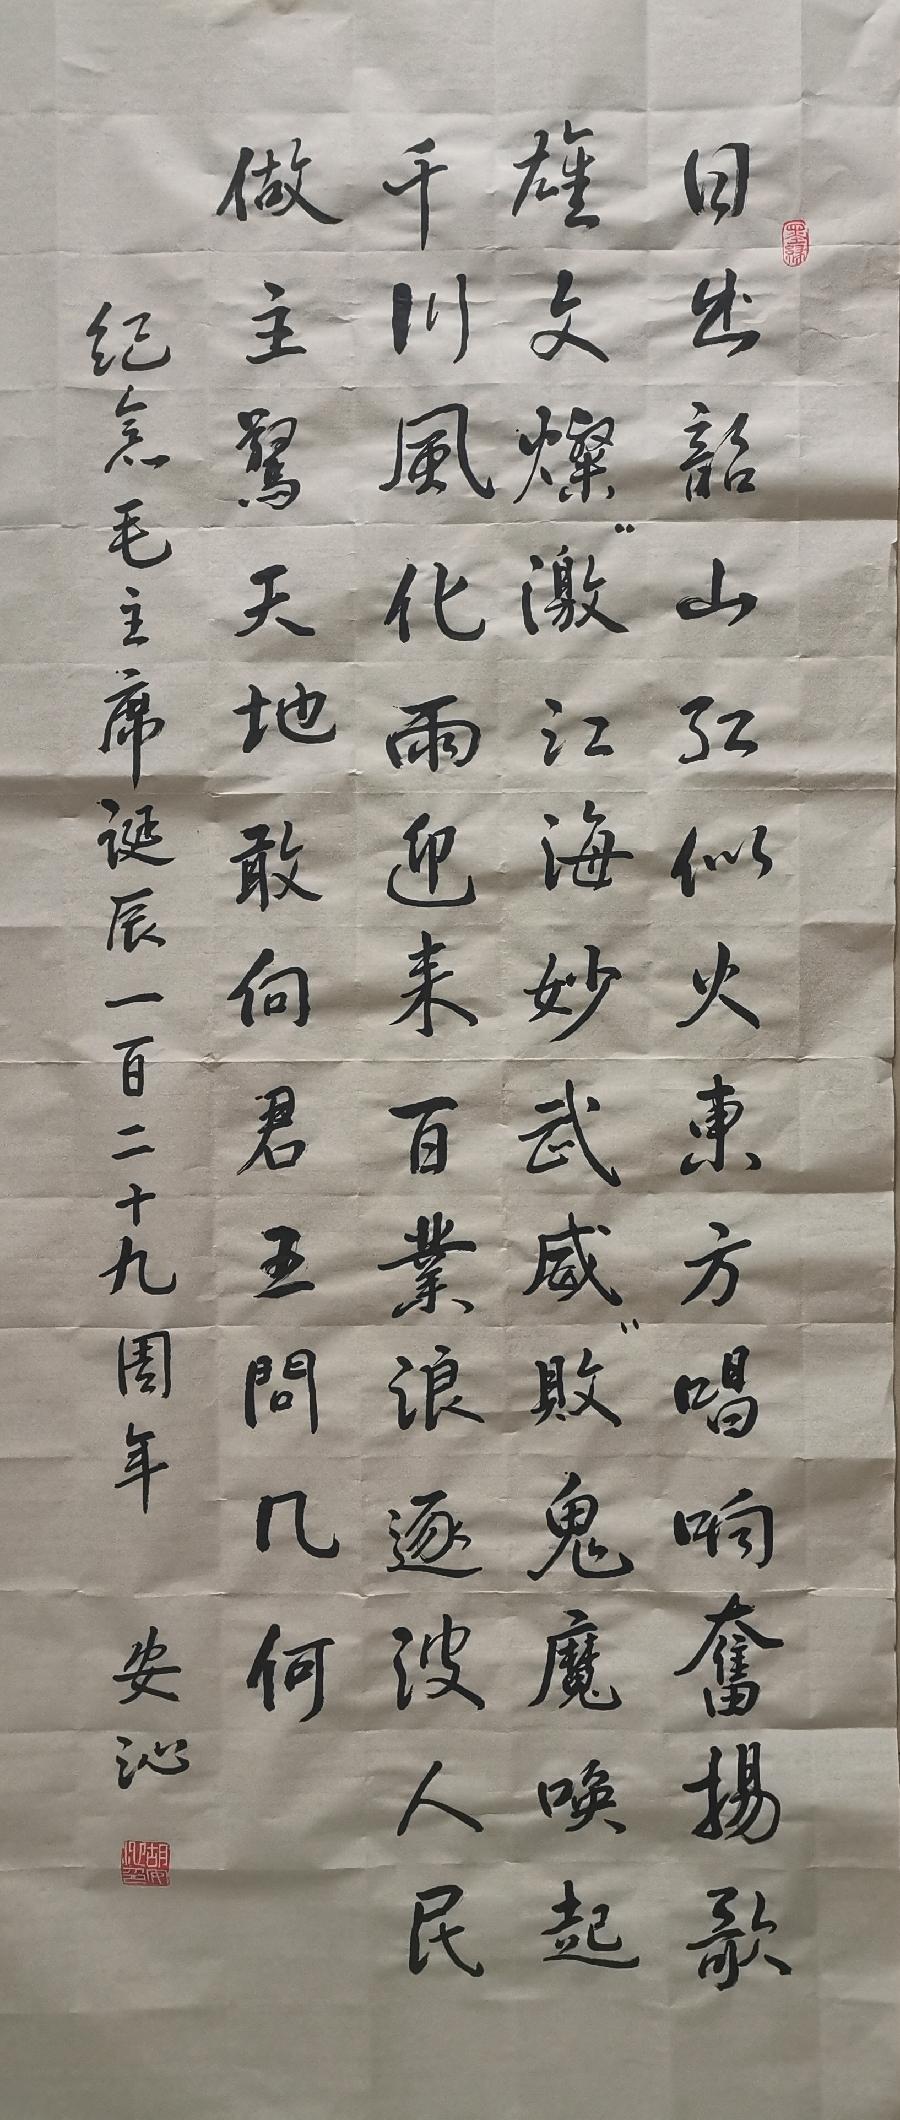 日出韶山红似火東方唱响奮揚歌
雄文燦激江海妙武威敗鬼魔唤起
千川風化雨迎来百業浪逐波人民
做主驚天地敢向君王問几何
纪念毛主席诞辰一百二十九周年 安沁